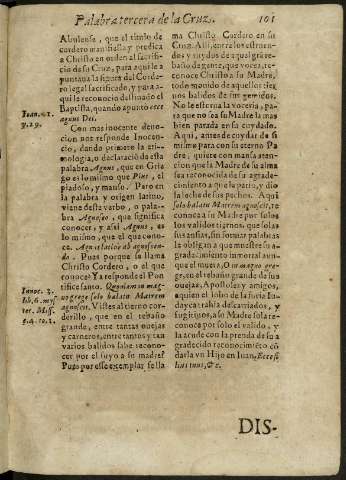 Palabra tercera de la Cruz. 101
Abulense, que el titulo de
cordero manifiesta y predica
a Christo en orden al sacrifi-
cio de su Cruz, para aqui le a
puntaua la figura del Corde-
ro legal sacrificado, y para a-
qui le reconocio destinado el
Baptista, quando apuntò ecce
agnus Dei.
Ioan. c. 1.
v. 29.
Con mas inocente deuo-
cion nos responde Inocen-
cio, dando primero la eti-
mologia, o declaraciõ desta
palabra, Agnus, que en Grie
go es lo mismo que Pius, el
piadoso, y manso. Pero en
la palabra y origen latino,
viene deste verbo, o palabra
Agnosco, que significa
conocer, y assi Agnus, es
lo mismo, que el que cono-
ce. Agnelatio ab agnoscen-
do. Pues porque se llama
Christo Cordero, o el que
conoce? Ya responde el Pon
tifice santo. Quoniam in ma-
gno grege solo balatu Matrem
agnoscit. Vistes al tierno cor-
derillo, que en el rebaño
grande, entre tantas ouejas
y carneros, entre tantos y tan
varios balidos sabe recono-
cer por el suyo a su madre?
Pues por esse exemplar se lla
Innoc. 3.
lib. 6. mys
ter. Miss.
ma Christo Cordero en su
Cruz. Alli, entre los estruen-
dos y ruydos de aquel gra re-
baño de gente, que vocea, re-
conoce Christo a su Madre,
todo mouido de aquellos tier
nos balidos de sus gemidos.
No le estorua la voceria, pa-
ra que no sea su Madre la mas
bien parada en su cuydado.
Aqui, antes de cuydar de si
mismo para con su eterno Pa
dre, quiere con mansa aten-
cion que la Madre de su alma
sea reconocida de su agrade-
cimiento a que la pario, y dio
la leche de sus pechos. Aqui
solo balatu Matrem agnoscit, re
conoce a su Madre por solos
los validos tiernos, que solas
sus ansias, sin formar palabras
le obligan a que muestre su a-
gradecimiento inmortal aun-
que el muera, O in magno gre-
ge, en el rebaño grande de sus
ouejas, Apostoles y amigos,
quien el lobo de la furia Iu-
dayca traîa descarriados, y
fugitiuos, a su Madre sola re-
conoce por solo el valido, y
la acude con la prenda de su a
gradecido reconocimiẽto cõ
darla vn Hijo en Iuan, Ecce fi
lius tuus, &c.
DIS-